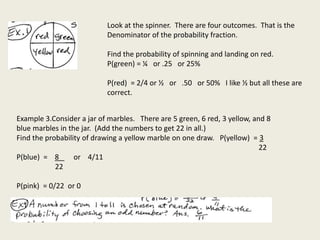 Ex. 1
red green
yellow red
Look at the spinner. There are four outcomes. That is the
Denominator of the probability fraction.
Find the probability of spinning and landing on red.
P(green) = ¼ or .25 or 25%
P(red) = 2/4 or ½ or .50 or 50% I like ½ but all these are
correct.
Example 3.Consider a jar of marbles. There are 5 green, 6 red, 3 yellow, and 8
blue marbles in the jar. (Add the numbers to get 22 in all.)
Find the probability of drawing a yellow marble on one draw. P(yellow) = 3
22
P(blue) = 8 or 4/11
22
P(pink) = 0/22 or 0
A number from 1 to 11 is chosen at random. What is the
probability of choosing an odd number? Ans. 6
11